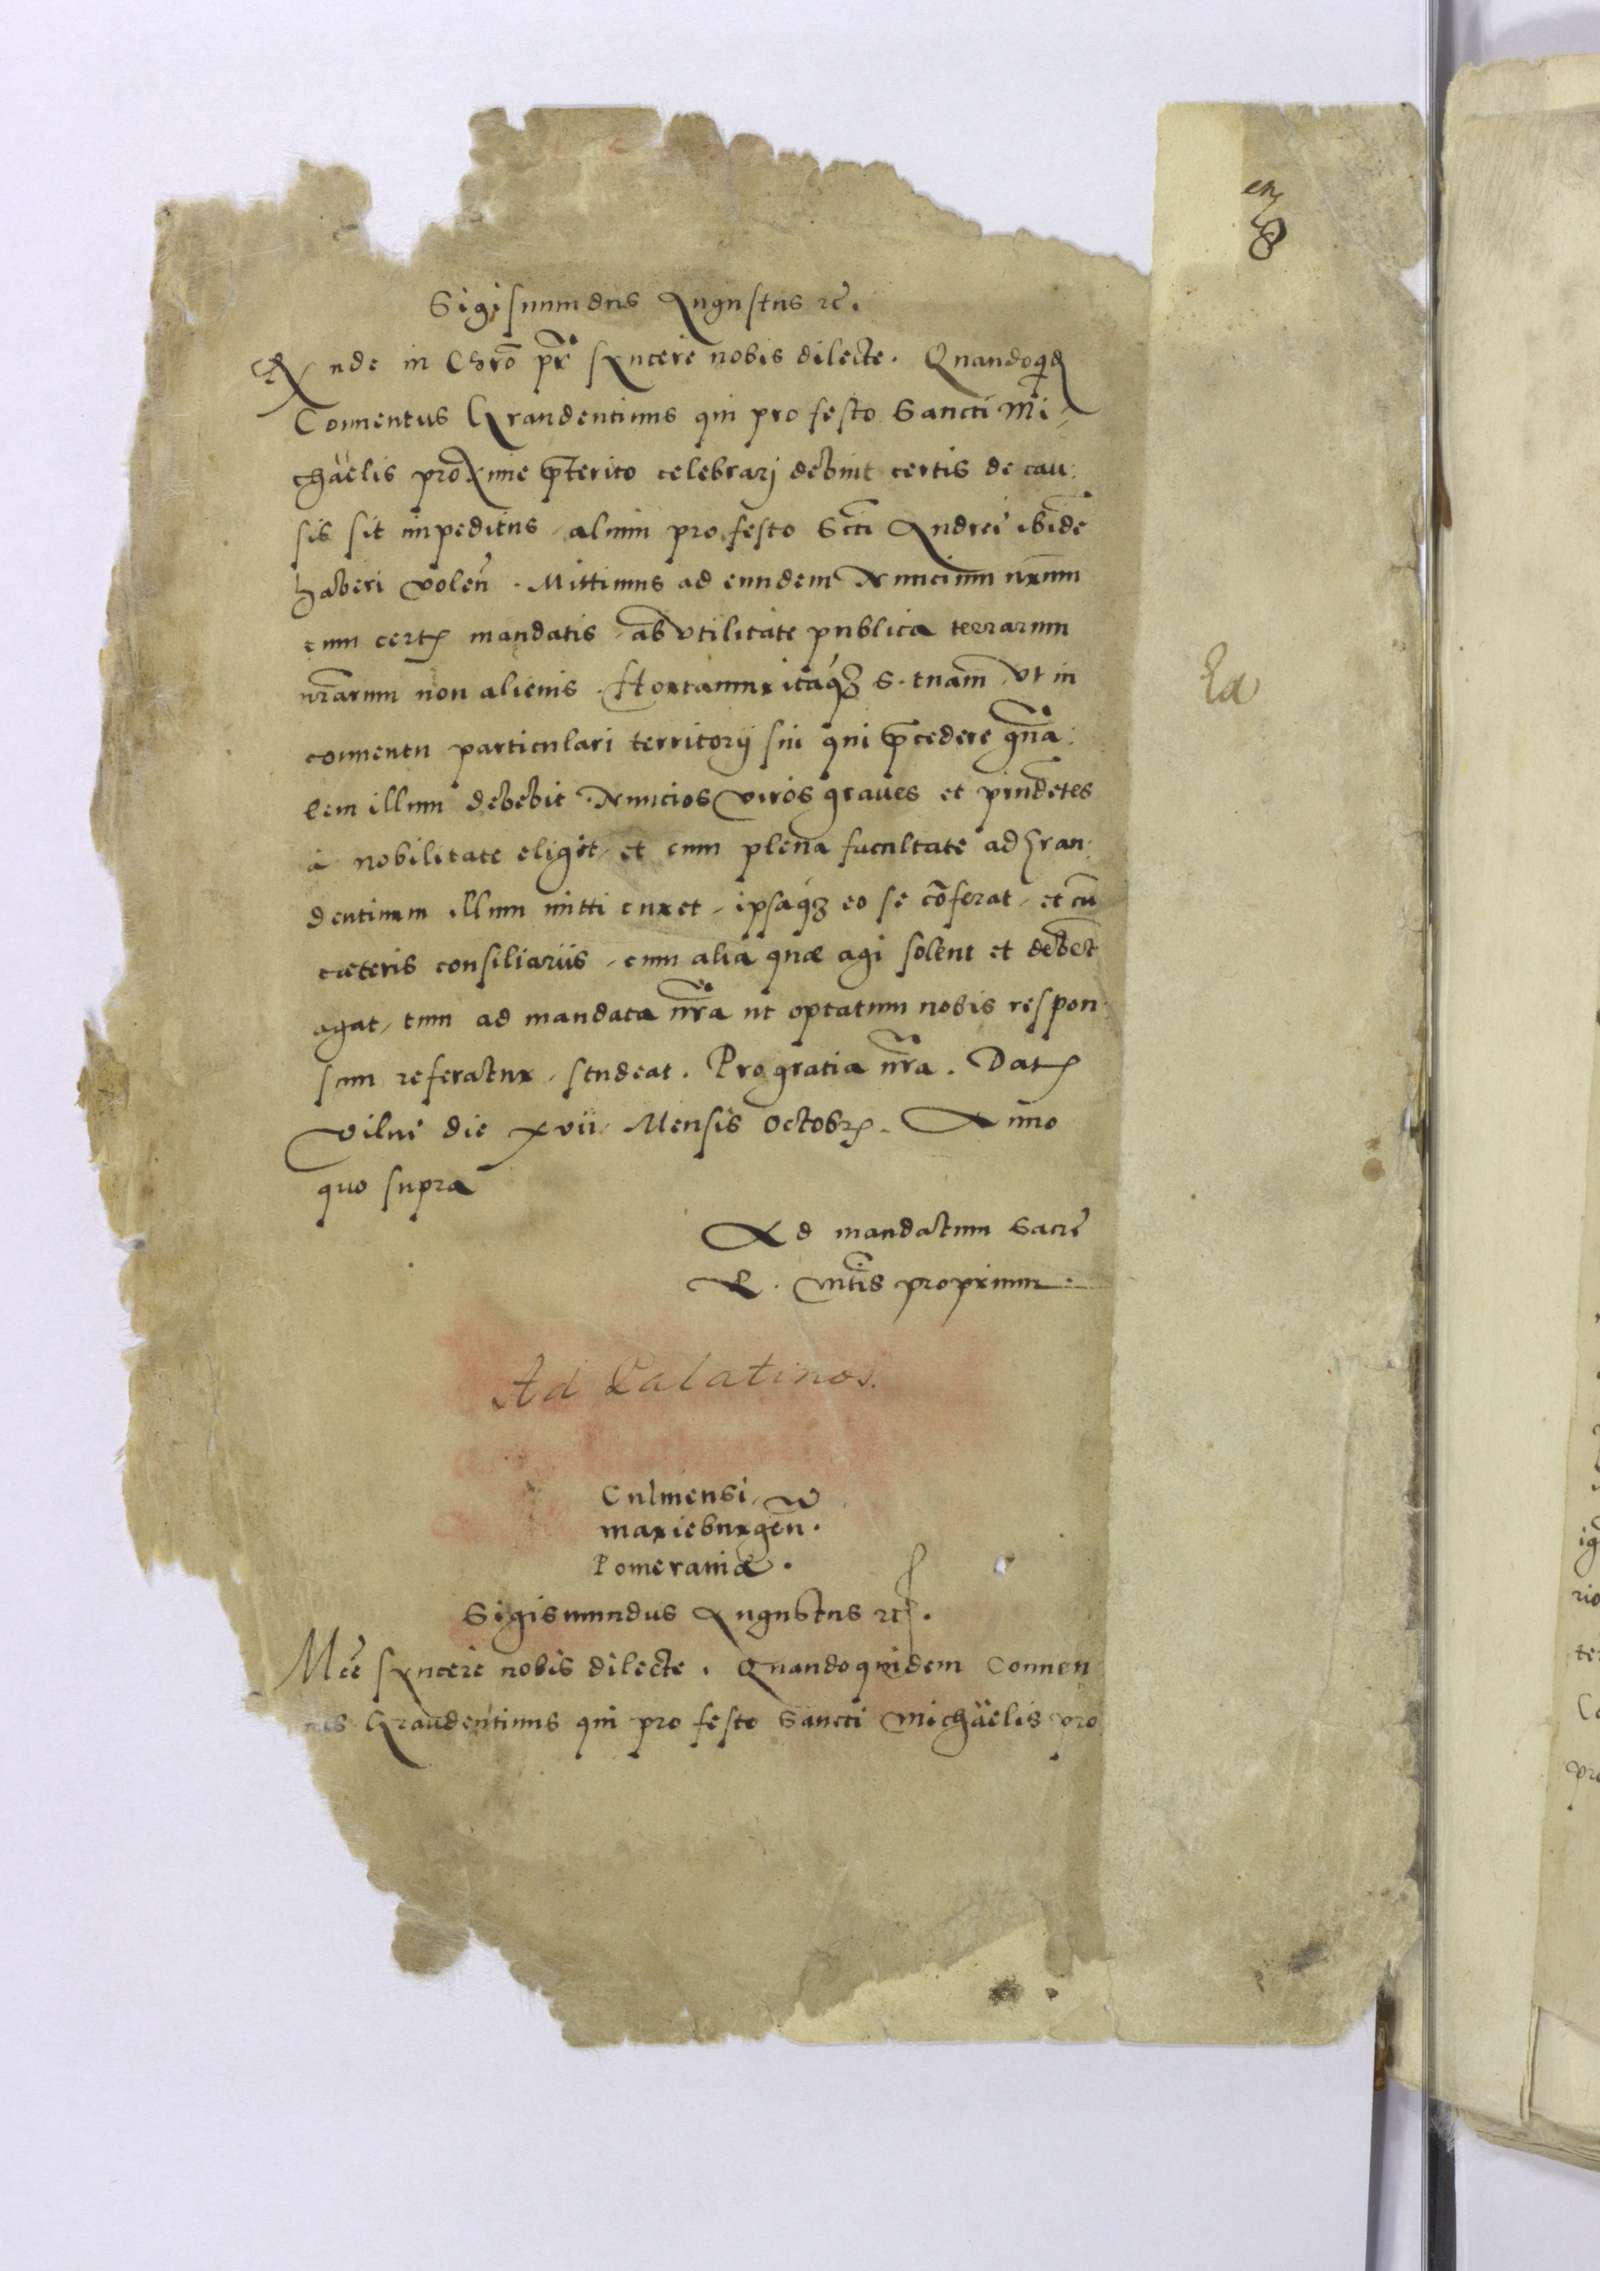 Sigismundus Augustus rc̃.
Rnde in Chrõ pr̃ syncere nobis dilecte. Quandoqd
Conuentus Graudentinus qui pro festo Sancti Mi
chaëlis proxime p̃terito celebrarj debuit certis de cau:
sis sit impeditus, alium pro festo Scti Andreę ibidẽ
haberi volen̄. Mittimus ad eundem Nuncium nr̃um
cum certꝭ mandatis, ab vtilitate publica terrarum
nr̃arum non alienis. Hortamur itaq́ꝫ S. tuam vt in
conuentu particulari territorij sui qui p̃cedere gñā:
lem illum debebit Nuncios viros graues et prudẽtes
à nobilitate eligat, et cum plena facultate ad Grau:
dentinum illum mitti curet, ipsaq́ꝫ eo se cõferat, et cũ
cæteris consiliarijs, cum alia quæ agi solent et debẽt
agat, tum ad mandata nr̃a ut optatum nobis respon:
sum referatur, studeat. Pro gratia nr̃a. Datꝭ
Vilnę die xvii Mensis Octobrꝭ. Anno
quo supra
Ad mandatum Sacrę
R. Mtis proprium.
Ad Palatinos.
Culmensẽ,
Marieburgeñ.
Pomeraniæ.
Sigismundus Augustus rc̃.
Mcę syncere nobis dilecte. Quandoquidem Conuen
tus Graudentinus qui pro festo Sancti Michaëlis pro